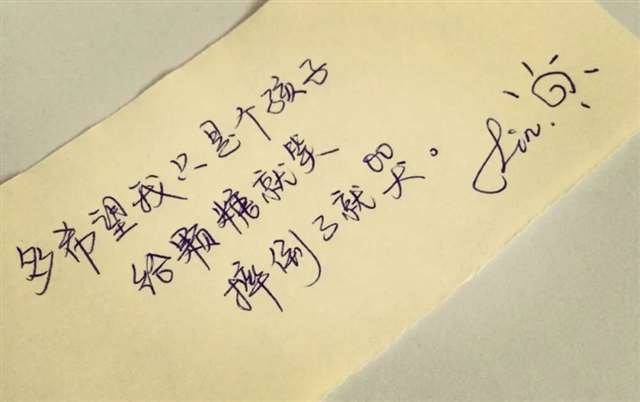 多希望我只是个孩子
给颗糖就笑
摔倒了就哭。
Lin.